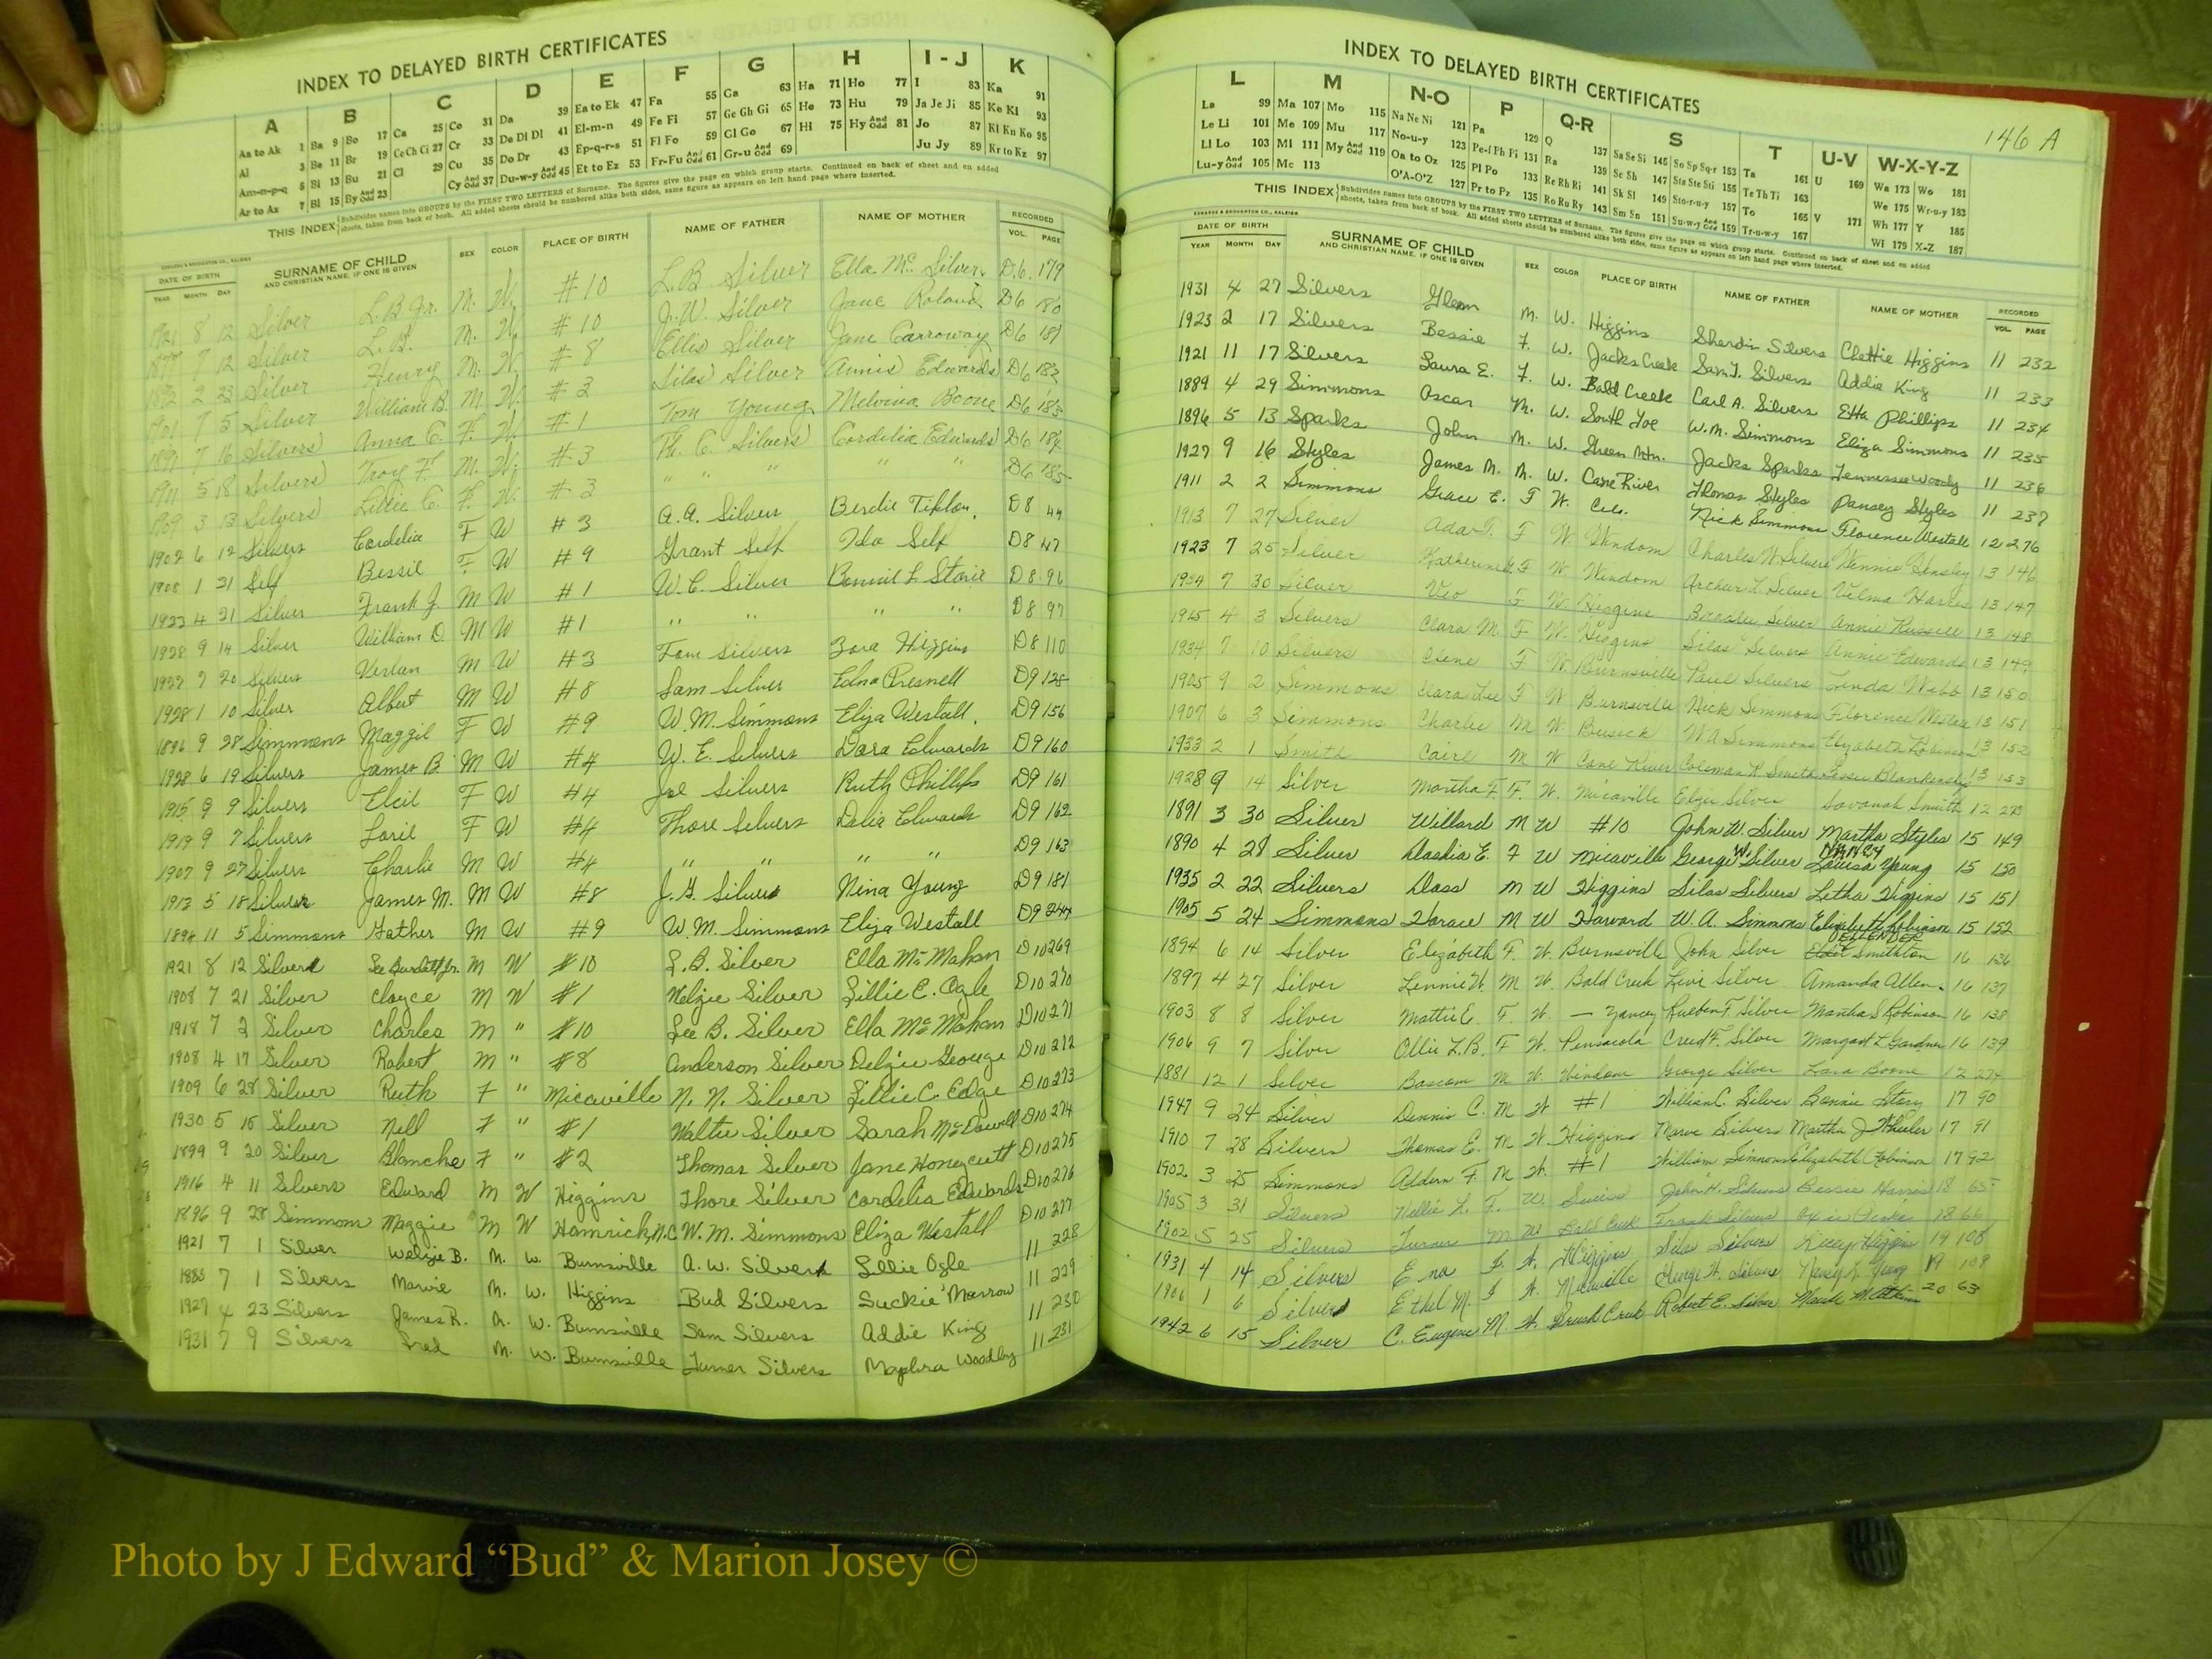 INDEX TO DELAYED BIRTH CERTIFICATES
A B C D E F G H I - J K
Aa to Ak 1 Ba 9 Bo 17 Ca 25 Co 31 Da 39 Ea to Ek 47 Fa 55 Ga 63 Ha 71 Ho 77 I 83 Ka 91
Al 3 Be 11 Br 19 Ce Ch Ci 27 Cr 33 De Di Dl 41 El-m-n 49 Fe Fi 57 Ge Gh Gi 65 He 73 Hu 79 Ja Je Ji 85 Ke Kl 93
Am-n-p-q 5 Bi 13 Bu 21 Cl 29 Cu 35 Do Dr 43 Ep-q-r-s 51 Fl Fo 59 Gl Go 67 Hi 75 Hy And Odd 81 Jo 87 Kl Kn Ko 95
Ar to Az 7 Bl 15 By And Odd 23 Cy And Odd 37 Du-w-y And Odd 45 Et to Ez 53 Fr-Fu And Odd 61 Gr-u And Odd 69 Ju Jy 89 Kr to Kz 97
THIS INDEX Subdivides names into GROUPS by the FIRST TWO LETTERS of Surname. The figures give the page on which group starts. Continued on back of sheet and on added
sheets, taken from back of book. All added sheets should be numbered alike both sides, same figure as appears on left hand page where inserted.
DATE OF BIRTH SURNAME OF CHILD SEX COLOR PLACE OF BIRTH NAME OF FATHER NAME OF MOTHER RECORDED
YEAR MONTH DAY AND CHRISTIAN NAME, IF ONE IS GIVEN VOL. PAGE
1921 8 12 Silver L.B. Jr. M. W. #10 L.B. Silver Ella Mc. Silver D.6. 179
7 12 Silver L.B. M. W. #10 J.W. Silver Jane Roland D6 180
2 23 Silver Henry M. W. #8 Ellis Silver Jane Carroway D6 181
1901 7 5 Silver William B. M W. #3 Silas Silver Annis Edwards D6 182
7 16 Silvers Anna C. F. W. #1 Tom Young Melvina Boone D6 183
1911 5 18 Silvers Troy F. M. W. #3 Th. C. Silvers Cordelia Edwards D6 184
1909 3 13 Silvers Lillie C. F. W. #3 " " " " D6 185
1902 6 12 Silvers Cordelia F W #3 A.A. Silver Berdie Tipton D8 44
1908 1 31 Self Bessie F W #9 Grant Self Ida Self D8 47
4 21 Silver Frank J. M W #1 W.C. Silver Bonnie L. D8 96
1928 9 14 Silver William D. M W #1 " " " " D8 97
7 20 Silvers Verlan M W #3 Tom Silvers Zora Higgins D8 110
1928 1 10 Silver Albert M W #8 Sam Silver Edna Presnell D9 128
1896 9 28 Simmons Maggie F W #9 W.M. Simmons Eliza Westall D9 156
1928 6 19 Silvers James B. M W #4 W.E. Silvers Dora Edwards D9 160
1915 9 9 Silvers Elcil F W #4 Joe Silvers Ruth Phillips D9 161
1919 9 7 Silvers F W #4 Thore Silvers Delia Edwards D9 162
1907 9 27 Silvers Charlie M W #4 " " " " D9 163
1913 5 18 Silver James M. M W #8 J.G. Silver Nina Young D9 181
1894 11 5 Simmons Gather M W #9 W.M. Simmons Eliza Westall D9 244
1921 8 12 Silver M W #10 L.B. Silver Ella McMahan D10 269
1908 7 21 Silver Cloyce M W #1 Nelzie Silver Lillie C. Ogle D10 270
1918 7 2 Silver Charles M " #10 Lee B. Silver Ella McMahan D10 271
1908 4 17 Silver Robert M " #8 Anderson Silver Delzie George D10 272
1909 6 28 Silver Ruth F " Micaville N.N. Silver Lillie C. Edge D10 273
1930 5 15 Silver Nell F " #1 Walter Silver Sarah McDowell D10 274
1899 9 20 Silver Blanche F " #2 Thomas Silver Jane Honeycutt D10 275
1916 4 11 Silvers Edward M W Higgins Thore Silver Cordelia Edwards D10 276
1896 9 28 Simmons Maggie M W Hamrick, N.C. W.M. Simmons Eliza Westall D10 277
1921 7 1 Silver Welzie B. M. W. Burnsville A.W. Silver Lillie Ogle 11 228
1883 7 1 Silvers Marvie M. W. Higgins Bud Silvers Suckie Marrow 11 229
1927 4 23 Silvers James R. M. W. Burnsville Sam Silvers Addie King 11 230
1931 7 9 Silvers Fred M. W. Burnsville Turner Silvers Maphra Woodby 11 231
146 A
INDEX TO DELAYED BIRTH CERTIFICATES
L M N-O P Q-R S T U-V W-X-Y-Z
La 99 Ma 107 Mo 115 Na Ne Ni 121 Pa 129 Q 137 Sa Se Si 145 So Sp Sq-r 153 Ta 161 U 169 Wa 173 Wo 181
Le Li 101 Me 109 Mu 117 No-u-y 123 Pe-f Ph Pi 131 Ra 139 Sc Sh 147 Sta Ste Sti 155 Te Th Ti 163 We 175 Wr-u-y 183
Ll Lo 103 Mi 111 My And Odd 119 Oa to Oz 125 Pl Po 133 Re Rh Ri 141 Sk Sl 149 Sto-r-u-y 157 To 165 V 171 Wh 177 Y 185
Lu-y And Odd 105 Mc 113 O'A-O'Z 127 Pr to Pz 135 Ro Ru Ry 143 Sm Sn 151 Su-w-y And Odd 159 Tr-u-w-y 167 Wi 179 X-Z 187
THIS INDEX Subdivides names into GROUPS by the FIRST TWO LETTERS of Surname. The figures give the page on which group starts. Continued on back of sheet and on added
sheets, taken from back of book. All added sheets should be numbered alike both sides, same figure as appears on left hand page where inserted.
EDWARDS & BROUGHTON CO., RALEIGH
DATE OF BIRTH SURNAME OF CHILD SEX COLOR PLACE OF BIRTH NAME OF FATHER NAME OF MOTHER RECORDED
YEAR MONTH DAY AND CHRISTIAN NAME, IF ONE IS GIVEN VOL. PAGE
1931 4 27 Silvers Glenn M. W. Higgins Sherdin Silvers Chettie Higgins 11 232
1923 2 17 Silvers Bessie F. W. Jacks Creek Sam T. Silvers Addie King 11 233
1921 11 17 Silvers Laura E. F. W. Bald Creek Carl A. Silvers Etta Phillips 11 234
1889 4 29 Simmons Oscar M. W. South Toe W.M. Simmons Eliza Simmons 11 235
1896 5 13 Sparks John M. W. Green Mtn. Jacks Sparks Tennessee Woody 11 236
1927 9 16 Styles James M. M. W. Cane River Thomas Styles Pansey Styles 11 237
1911 2 2 Simmons Grace E. F W. Celo. Nick Simmons Florence Westall 12 276
1913 7 27 Silver Ada F. F W. Windom Charles W. Silvers Hensley 13 146
1923 7 25 Silver Katherine F W Windom Arthur L. Silver Velma 13 147
1934 7 30 Silver Veo F W. Higgins Silver Annie Russell 13 148
1915 4 3 Silvers Clara M. F W. Higgins Silas Silvers Annie Edwards 13 149
1934 7 10 Silvers Clene F W. Burnsville Paul Silvers Linda Webb 13 150
1905 9 2 Simmons Clara Lee F W Burnsville Nick Simmons Florence 13 151
1907 6 3 Simmons Charlie M W. Busick W.A. Simmons Elizabeth Robinson 13 152
1933 2 1 Smith M W Cane River Coleman R. Smith Blankenship 13 153
1928 9 14 Silver Martha F. F. W. Micaville Elzie Silver Savanah Smith 12 273
1891 3 30 Silver Willard M W #10 John W. Silver Martha Styles 15 149
1890 4 28 Silver Daskia E. F W Micaville George W. Silver Nancy Louisa Young 15 150
1935 2 22 Silvers Dass M W Higgins Silas Silvers Letha Higgins 15 151
1905 5 24 Simmons Horace M W Harvard W.A. Simmons Elizabeth Robinson 15 152
1894 6 14 Silver Elizabeth F. W. Burnsville John Silver 16 136
1897 4 27 Silver Lennie W. M W. Bald Creek Levi Silver Amanda Allen 16 137
1903 8 8 Silver Mattie E. F. W. — Yancey Rueben F. Silver Martha S. Robinson 16 138
1906 9 7 Silver Ollie L.B. F W. Pensacola Creed F. Silver Margaret L. Gardner 16 139
1881 12 1 Silver Bascom M W. Windom George Silver Boone 12 274
1947 9 24 Silver Dennis C. M W #1 William C. Silver Bonnie Story 17 90
1910 7 28 Silvers Thomas E. M W. Higgins Marve Silvers Martha J. Wheeler 17 91
1902 3 25 Simmons Alden F. M W. #1 William Simmons Elizabeth Robinson 17 92
1905 3 31 Silvers Nellie F. W. John H. Silvers Bessie Harris 18 65
1902 5 25 Silvers Turner M W Bald Creek Frank Silvers 18 66
1931 4 14 Silvers Ena F. W. Higgins Silas Silvers Higgins 19 108
1906 1 6 Silver Ethel M. F W. Micaville George W. Silver Nancy L. Young 19 109
1942 6 15 Silver C. Eugene M. W. Brush Creek Robert E. Silver 20 63
Photo by J Edward “Bud” & Marion Josey ©